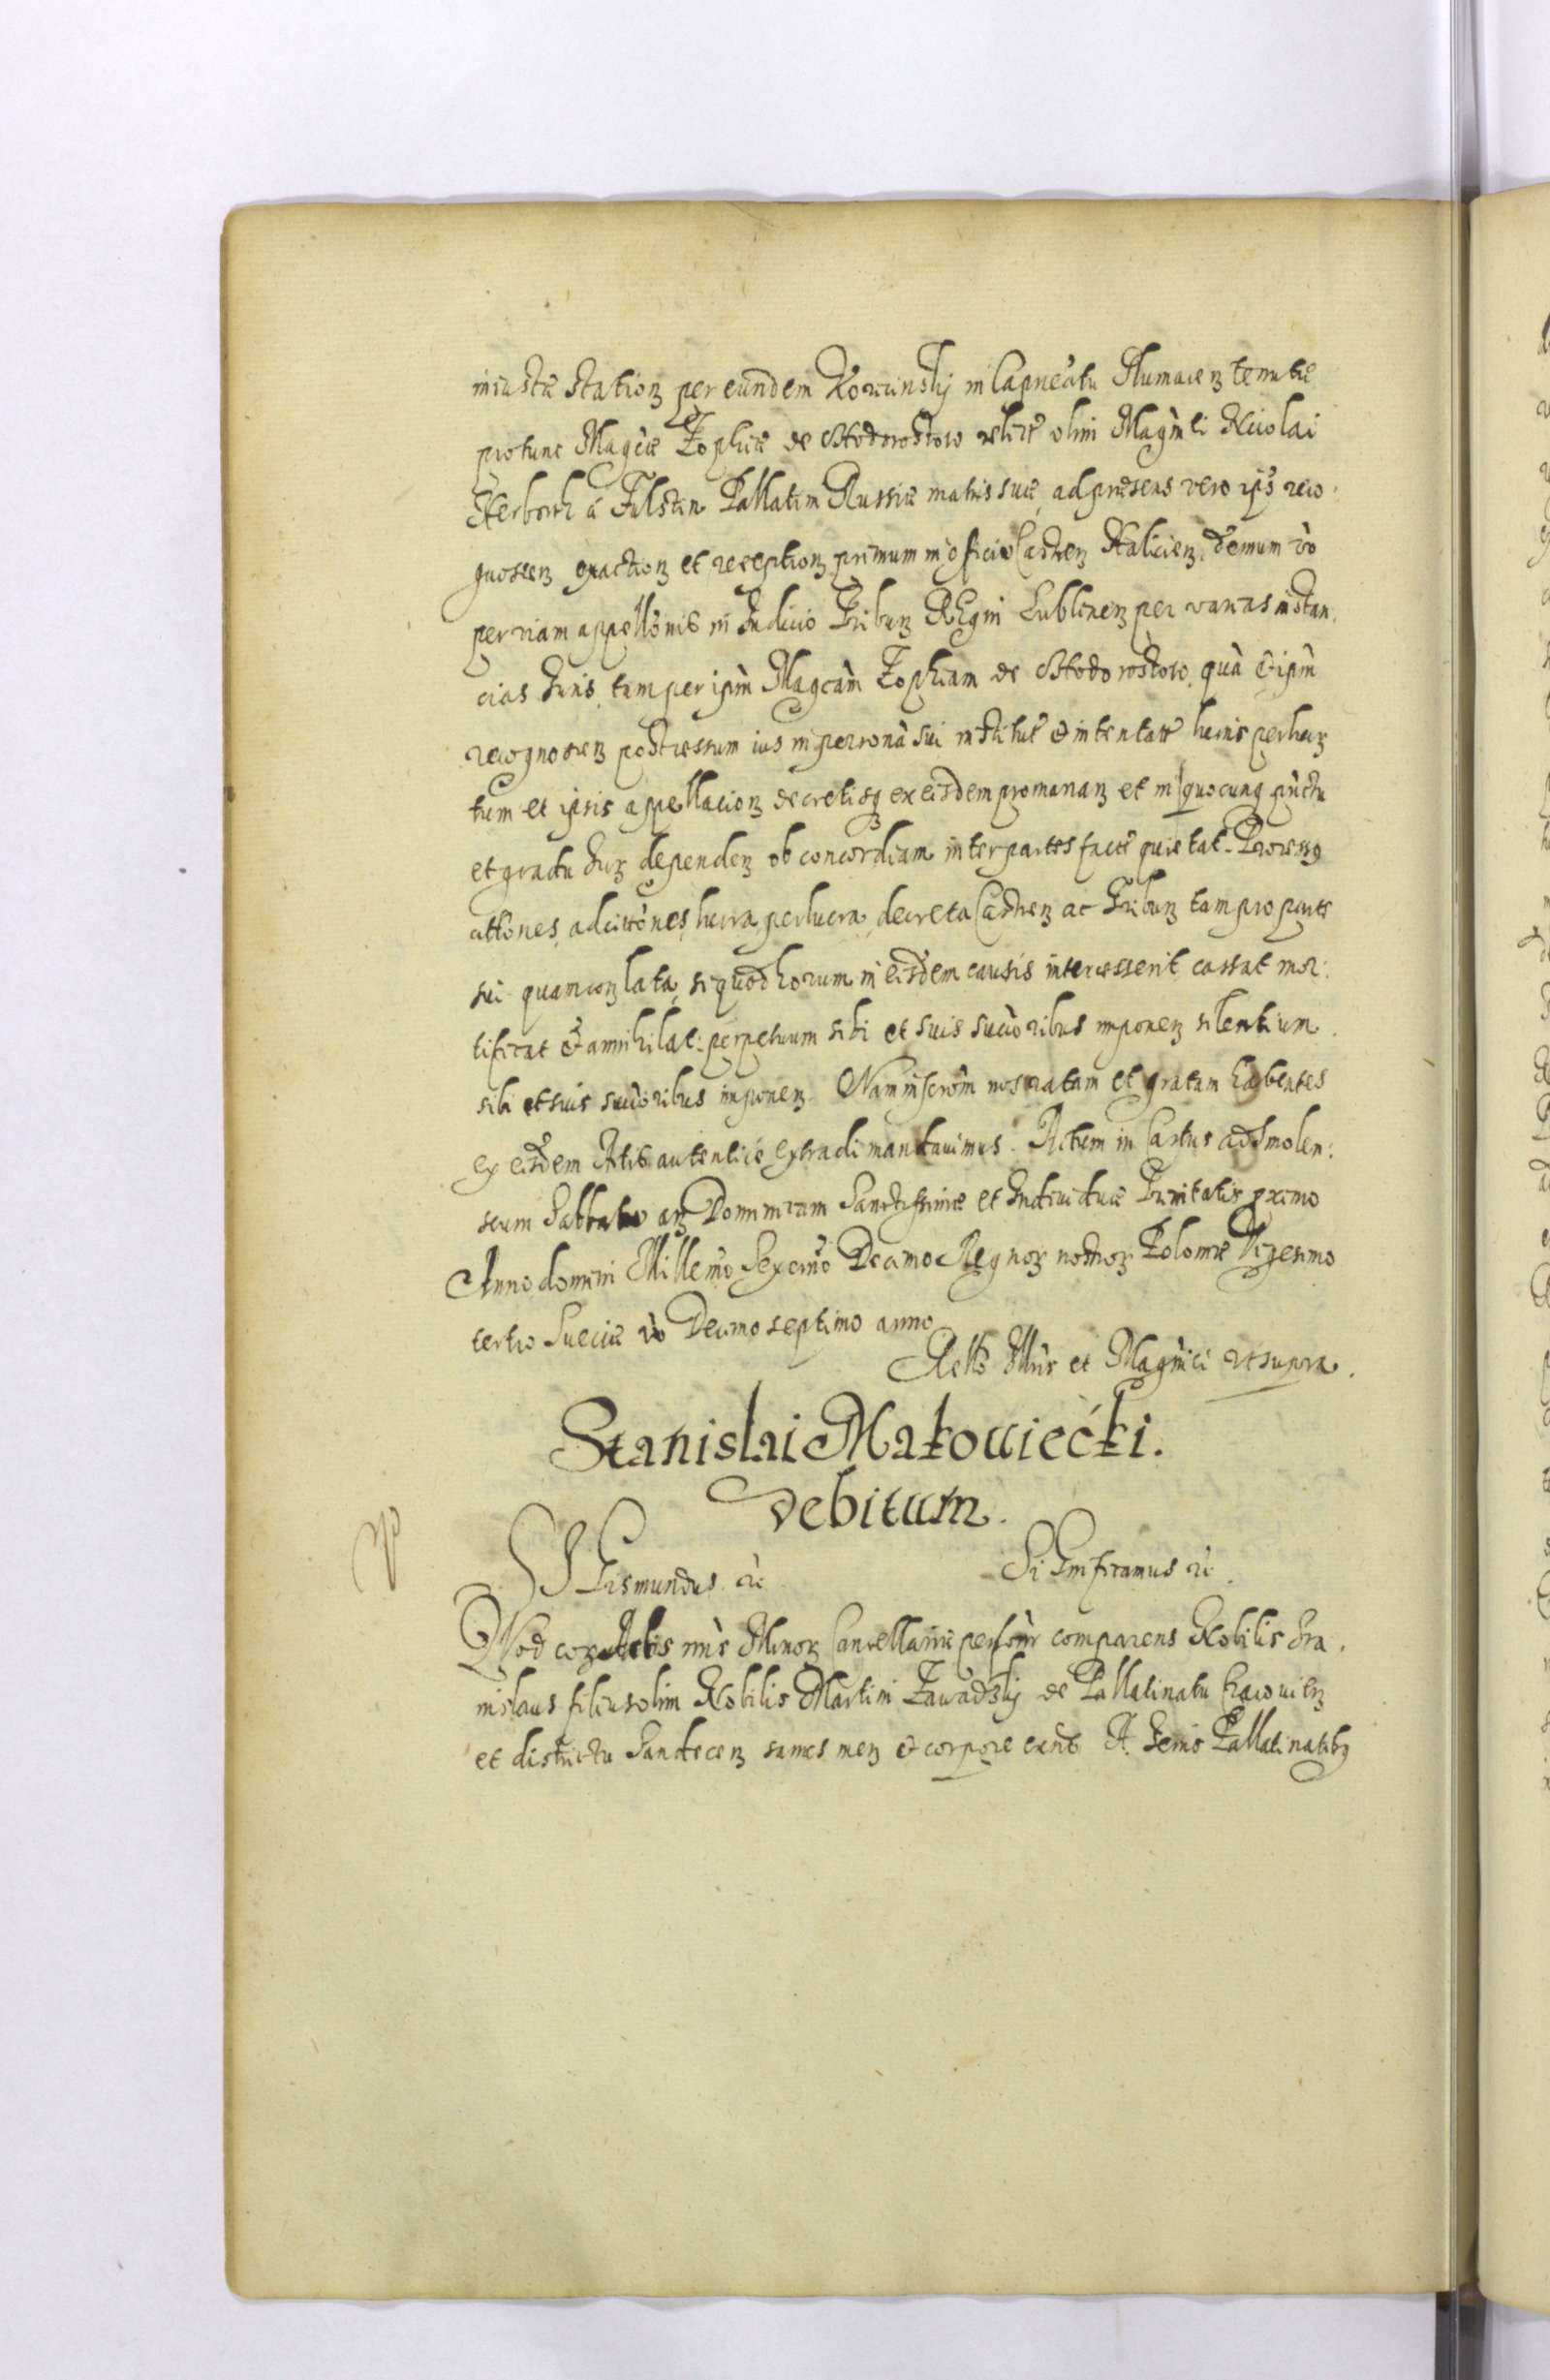 iniustæ stationẓ per eundem Korcinskÿ in Capneatu Tlumacenẓ tenutæ
protunc Magcæ Zophiæ de Chodorostow relictæ olim Magnifci Nicolai
Herborth á Fulstin Pallatini Russiæ matris suæ, ad præsens vero ipso reco
gnoscenẓ exactionẓ et receptionẓ primum in officio Castrenẓ Halicienẓ, demum vo
per viam appellõnis in Iudicio Tribunẓ Regni Lublinenẓ per varias instan
cias Iuris, tam per ipsam Magcam Zophiam de Chodorostow, quã & ipsum
recognoscenẓ post cessum ius in persona sui institutæ & intentatæ lucris perlucrẓ
tum et ipsis appellacionẓ decretisq ex eisdem promananẓ et in quocunq punctu
et gradu Iurẓ dependenẓ ob concordiam inter partes factã quietat. Processq
attones, adcittões, lucra, perlucra, decreta Castrenẓ ac Tribunẓ tam pro parte
sui quam conẓ lata, si quod horum in eisdem causis intercesserit cassat mor:
tificat & annihilat: perpetuum sibi et suis succoribus imponenẓ silentium
sibi et suis succoribus imponenẓ. Nam inscrom nos ratam et gratam habentes
ex eisdem Actis autenticè extradi mandavimus. Actum in Castris ad Smolen:
scum Sabbatho anẓ Dominicam Sanctissimæ et Individuæ Trinitatis proximo
Anno domini Millemo Sexcemo Decimo Regnorẓ nostrorẓ Poloniæ Vigesimo
tertio Sueciæ vo Decimo septimo anno
Relto Illris et Magnifici ut supra.
Stanislai Makowiećki.
debitum.
SIGismundus &c
Significamus &c.
Quod corẓ Actis nris Minorẓ Cancellariæ personr comparens Nobilis Sta
nislaus filius olim Nobilis Martini Zawadzkÿ de Pallatinatu Cracovienẓ
et districtu Sandecenẓ sanus menẓ & corpore exns A Terris Pallatinatibq